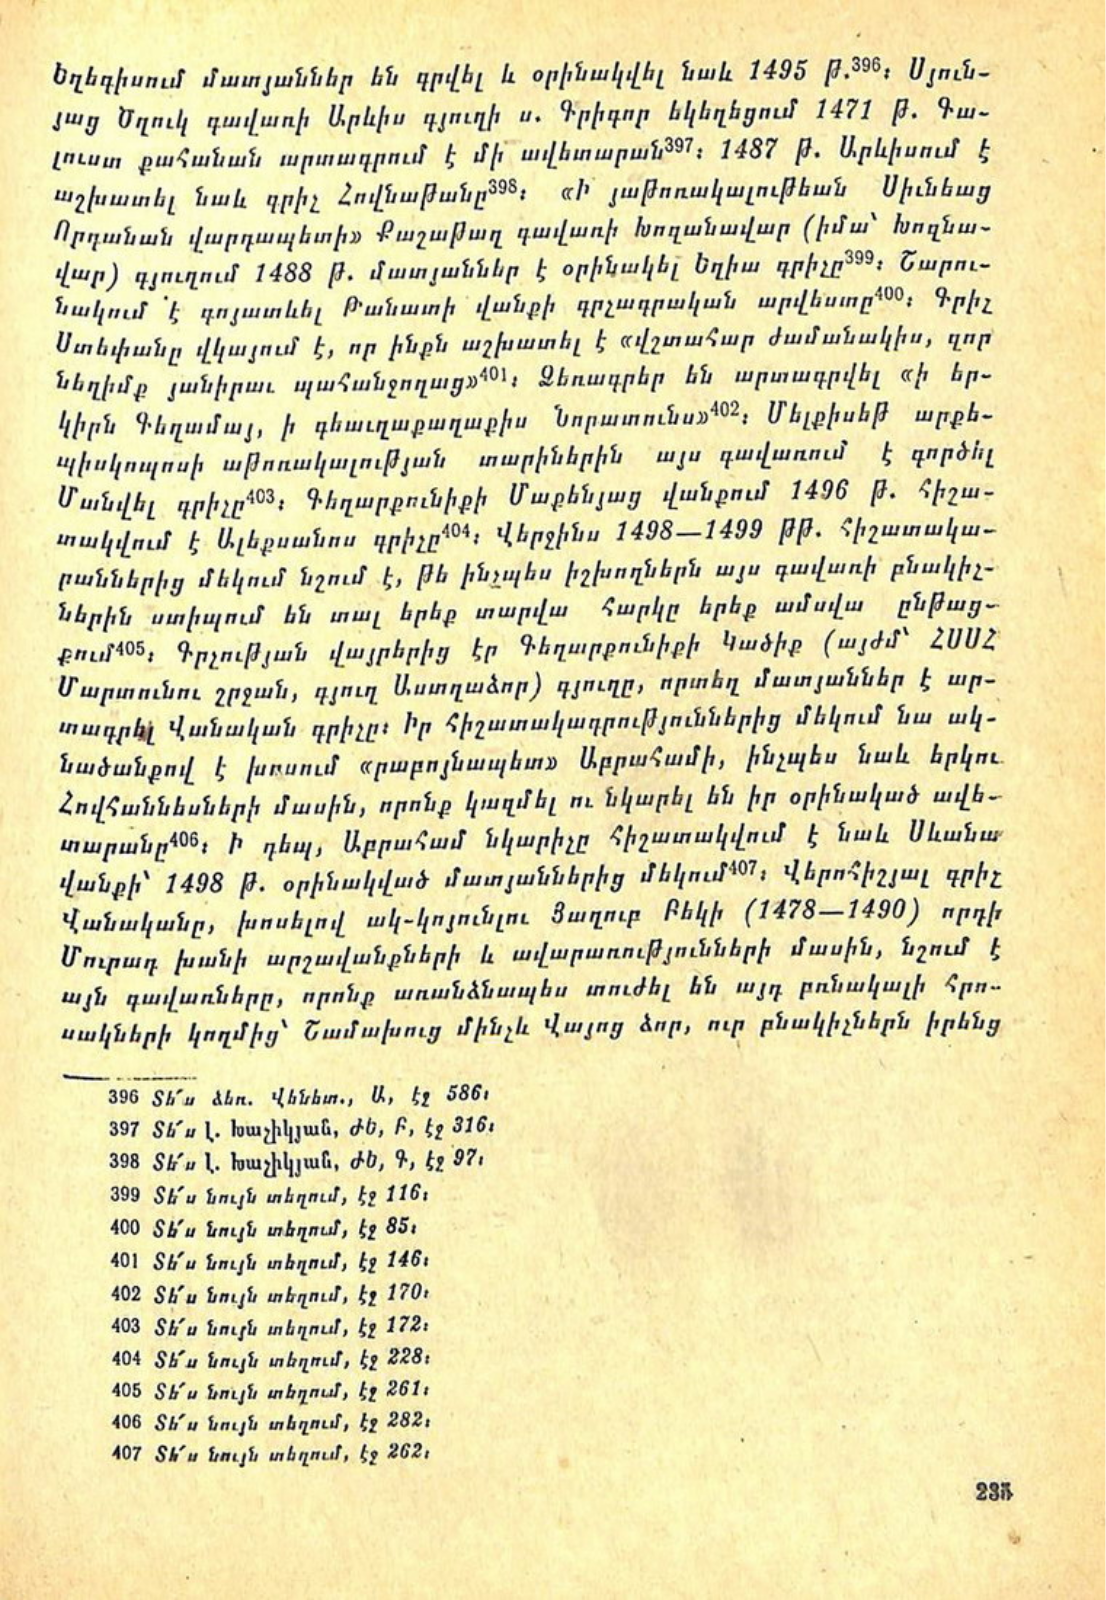 Եղեգիսում մատյաններ են գրվել և օրինակվել նաև 1495 թ.396։ Սյուն-
յաց Ծղուկ գավառի Արևիս գյուղի ս. Գրիգոր եկեղեցում 1471 թ. Գա-
լուստ քահանան արտագրում է մի ավետարան397։ 1487 թ. Արևիսում է
աշխատել նաև գրիչ Հովնաթանը398։ «Ի յաթոռակալութեան Սիւնեաց
Որդանան վարդապետի» Քաշաթաղ գավառի Խողանավար (իմա՝ Խոզնա-
վար) գյուղում 1488 թ. մատյաններ է օրինակել Եղիա գրիչը399։ Շարու-
նակում է գոյատևել Թանատի վանքի գրչագրական արվեստը400։ Գրիչ
Ստեփանը վկայում է, որ ինքն աշխատել է «վշտահար ժամանակիս, զոր
նեղիմք յանիրաւ պահանջողաց»401։ Ձեռագրեր են արտագրվել «ի եր-
կիրն Գեղամայ, ի գեաւղաքաղաքիս Նորատունս»402։ Մելքիսեթ արքե-
պիսկոպոսի աթոռակալության տարիներին այս գավառում է գործել
Մանվել գրիչը403։ Գեղարքունիքի Մաքենյաց վանքում 1496 թ. հիշա-
տակվում է Ալեքսանոս գրիչը404։ Վերջինս 1498—1499 թթ. հիշատակա-
րաններից մեկում նշում է, թե ինչպես իշխողներն այս գավառի բնակիչ-
ներին ստիպում են տալ երեք տարվա հարկը երեք ամսվա ընթաց-
քում405։ Գրչության վայրերից էր Գեղարքունիքի Կածիք (այժմ՝ ՀՍՍՀ
Մարտունու շրջան, գյուղ Աստղաձոր) գյուղը, որտեղ մատյաններ է ար-
տագրել Վանական գրիչը։ Իր հիշատակագրություններից մեկում նա ակ-
նածանքով է խոսում «րաբոյնապետ» Աբրահամի, ինչպես նաև երկու
Հովհաննեսների մասին, որոնք կազմել ու նկարել են իր օրինակած ավե-
տարանը406։ Ի դեպ, Աբրահամ նկարիչը հիշատակվում է նաև Սևանա
վանքի՝ 1498 թ. օրինակված մատյաններից մեկում407։ Վերոհիշյալ գրիչ
Վանականը, խոսելով ակ-կոյունլու Յաղուբ Բեկի (1478—1490) որդի
Մուրադ խանի արշավանքների և ավարառությունների մասին, նշում է
այն գավառները, որոնք առանձնապես տուժել են այդ բռնակալի հրո-
սակների կողմից՝ Շամախուց մինչև Վայոց ձոր, ուր բնակիչներն իրենց
396 Տե՛ս ձեռ. Վենետ., Ա, էջ 586։
397 Տե՛ս Լ. Խաչիկյան, ԺԵ, Բ, էջ 316։
398 Տե՛ս Լ. Խաչիկյան, ԺԵ, Գ, էջ 97։
399 Տե՛ս նույն տեղում, էջ 116։
400 Տե՛ս նույն տեղում, էջ 85։
401 Տե՛ս նույն տեղում, էջ 146։
402 Տե՛ս նույն տեղում, էջ 170։
403 Տե՛ս նույն տեղում, էջ 172։
404 Տե՛ս նույն տեղում, էջ 228։
405 Տե՛ս նույն տեղում, էջ 261։
406 Տե՛ս նույն տեղում, էջ 282։
407 Տե՛ս նույն տեղում, էջ 262։
235